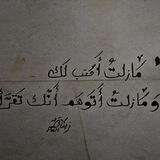 مازلتُ أكتب لك
ومازلتُ أتوهم أنّك تقرأ